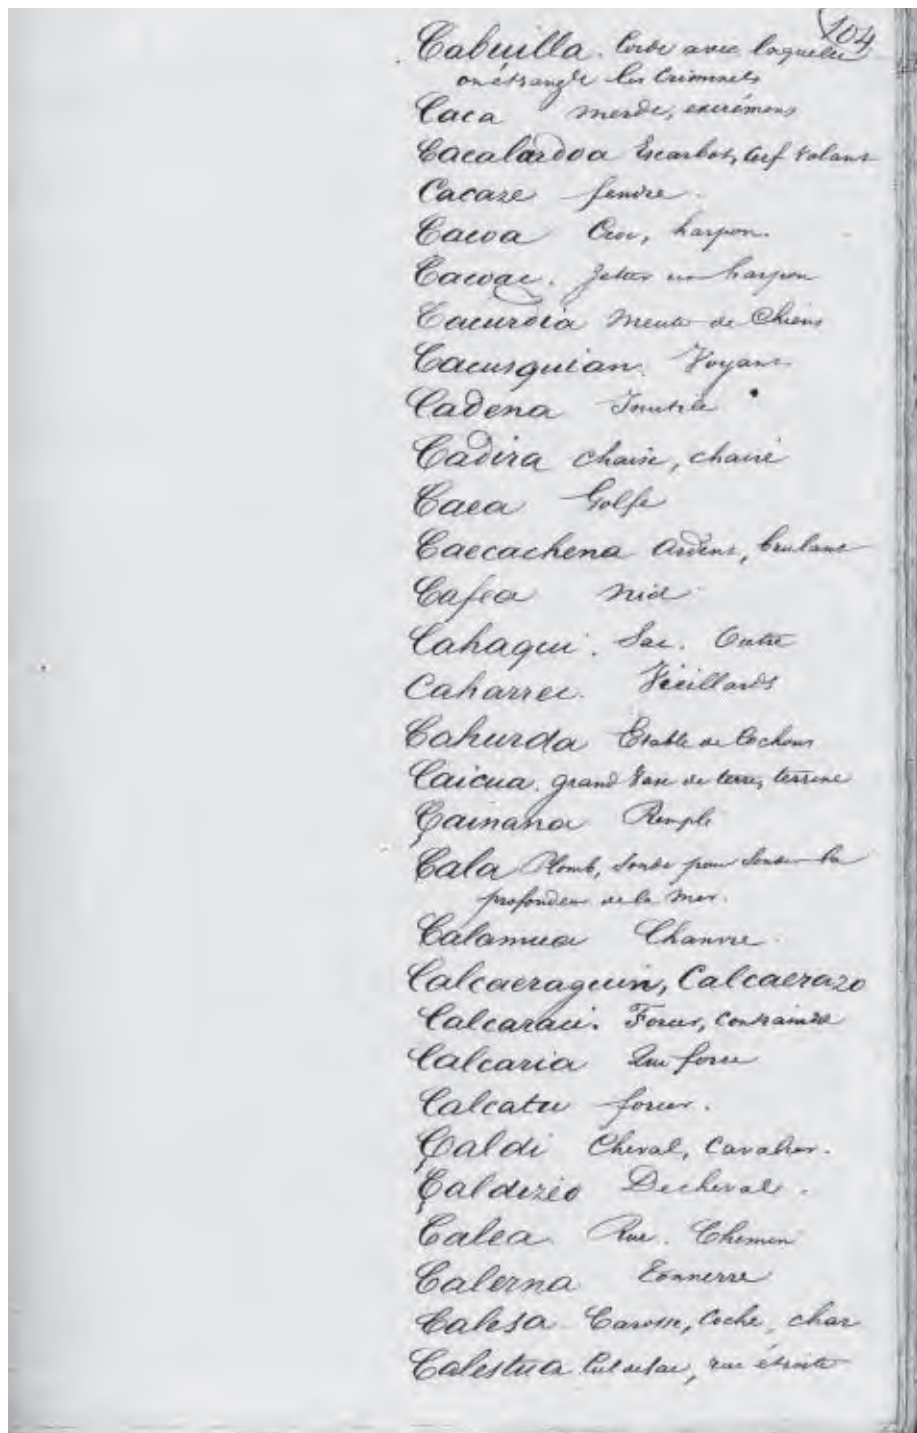 104
Cabuilla. Corde avec laquelle
on étrangle les Criminels
Caca merde, excrémens
Cacalardoa Escarbot, cerf volant
Cacaze fendre.
Cacoa Croc, harpon.
Cacoac. Jetter un harpon
Cacurdia Meute de Chiens
Cacusquian. Voyant
Cadena Inutile
Cadira chaise, chaire
Caea Golfe
Caecachena Ardent, brulant
Cafea nid
Cahaqui. Sac. Outre
Caharrec. Vieillards
Cahurda Etable de Cochons
Caicua. grand Vase de terre, terrine
Çainana Rempli
Cala Plomb, Sonde pour Sonder la
profondeur de la Mer.
Calamua Chanvre.
Calcaeraguin, Calcaerazo
Calcaraci. Forcer, Contraindre
Calcaria Qui force
Calcatu forcer.
Çaldi Cheval, Cavalier.
Çaldizco De cheval.
Calea Rue. Chemin
Calerna Tonnerre
Calesa Carosse, Coche, char
Calestua Cul de sac, rue étroite